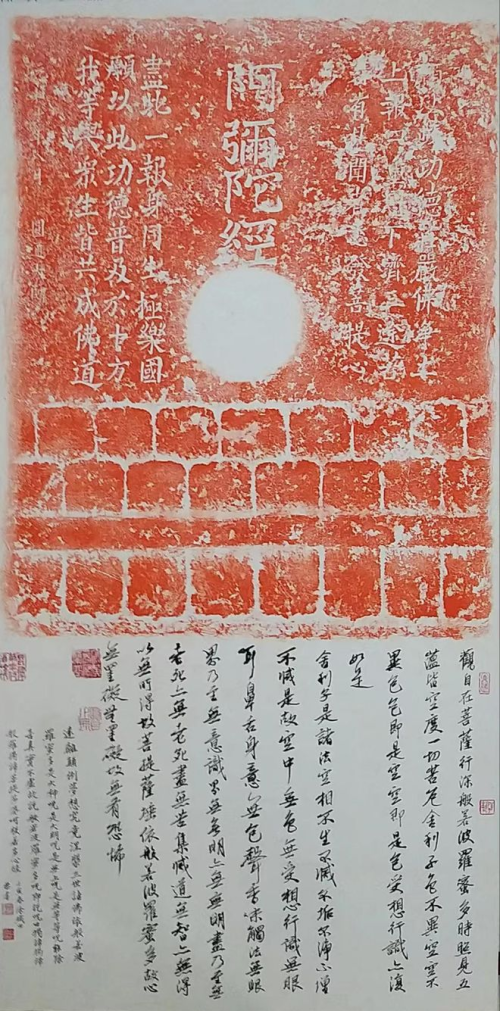 功德莊嚴佛淨土
上報四重恩下濟三途苦
有見聞者悉發菩提心
阿彌陀經
盡此一報身同生極樂國
願以此功德普及於十方
我等與眾生皆共成佛道
觀自在菩薩行深般若波羅蜜多時照見五
蘊皆空度一切苦厄舍利子色不異空空不
異色色即是空空即是色受想行識亦復
如是
舍利子是諸法空相不生不滅不垢不淨不增
不減是故空中無色無受想行識無眼
耳鼻舌身意亦無色聲香味觸法無眼
界乃至無意識界無無明亦無無明盡乃至無
老死亦無老死盡無苦集滅道無智亦無得
以無所得故菩提薩埵依般若波羅蜜多故心
無罣礙無罣礙故無有恐怖
遠離顛倒夢想究竟涅槃三世諸佛依般若波
羅蜜多是大神咒是大明咒是無上咒是無等等咒能除
真實不虛故說般若波羅蜜多咒即說咒曰揭諦揭諦
般羅揭諦菩提